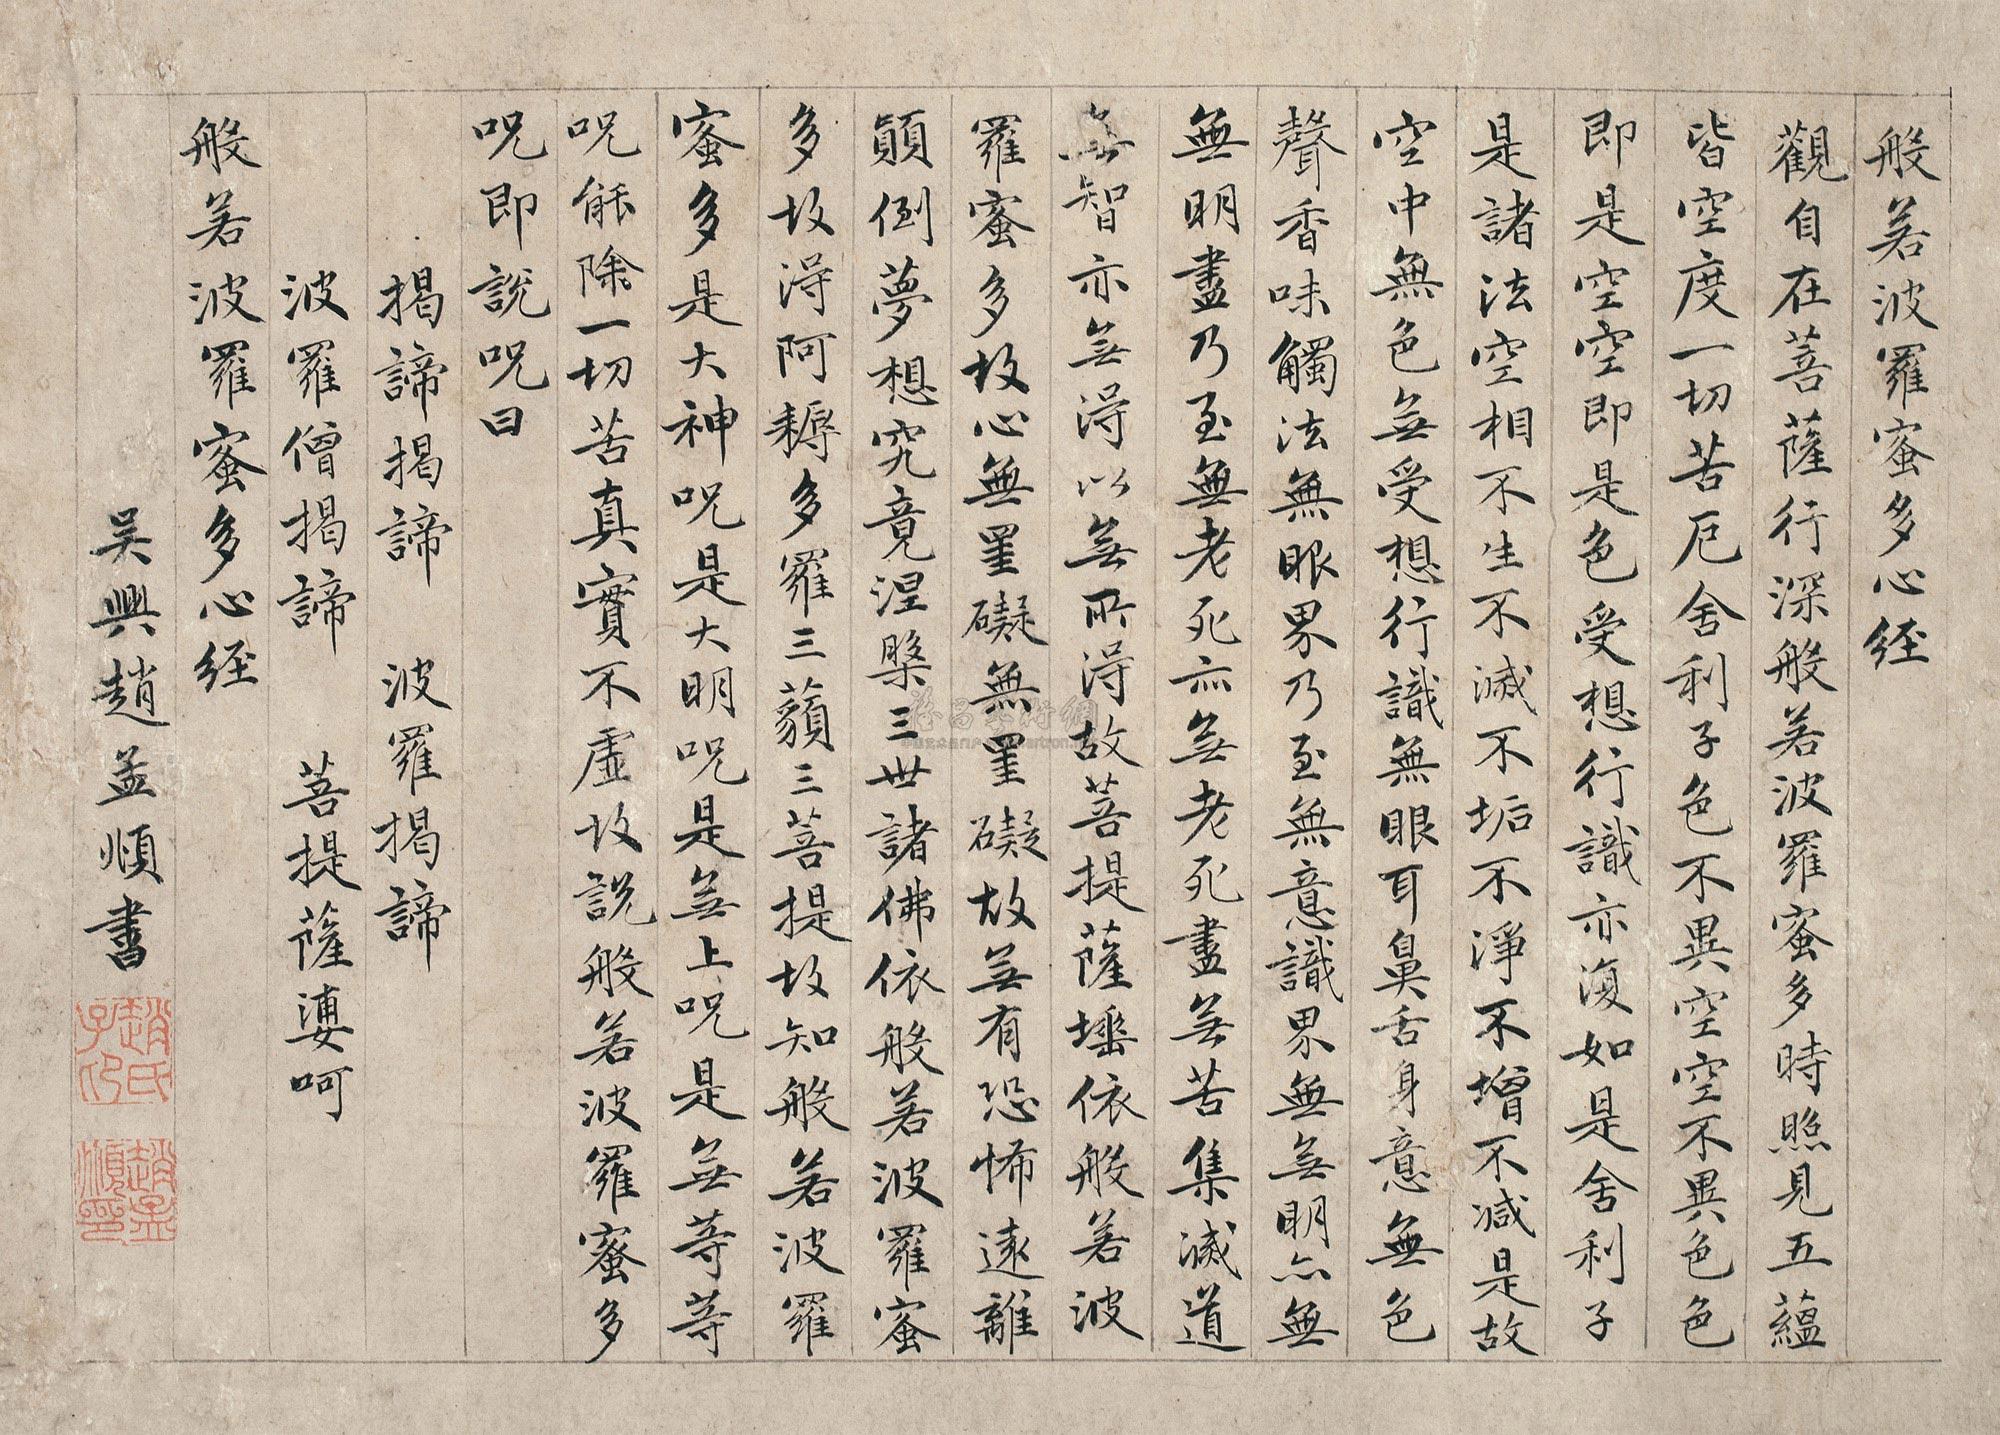 般若波羅蜜多心经
觀自在菩薩行深般若波羅蜜多時照見五蘊
皆空度一切苦厄舍利子色不異空空不異色色
即是空空即是色受想行識亦復如是舍利子
是諸法空相不生不滅不垢不淨不增不減是故
空中無色無受想行識無眼耳鼻舌身意無色
聲香味觸法無眼界乃至無意識界無無明亦無
無明盡乃至無老死亦無老死盡無苦集滅道
無智亦無得以無所得故菩提薩埵依般若波
羅蜜多故心無罣礙無罣礙故無有恐怖遠離
顛倒夢想究竟涅槃三世諸佛依般若波羅蜜
多故得阿耨多羅三藐三菩提故知般若波羅
蜜多是大神呪是大明呪是無上呪是無等等
呪能除一切苦真實不虛故說般若波羅蜜多
呪即說呪曰
揭諦揭諦 波羅揭諦
波羅僧揭諦 菩提薩婆呵
般若波羅蜜多心经
吴興趙孟頫書
趙氏子印
趙孟頫印